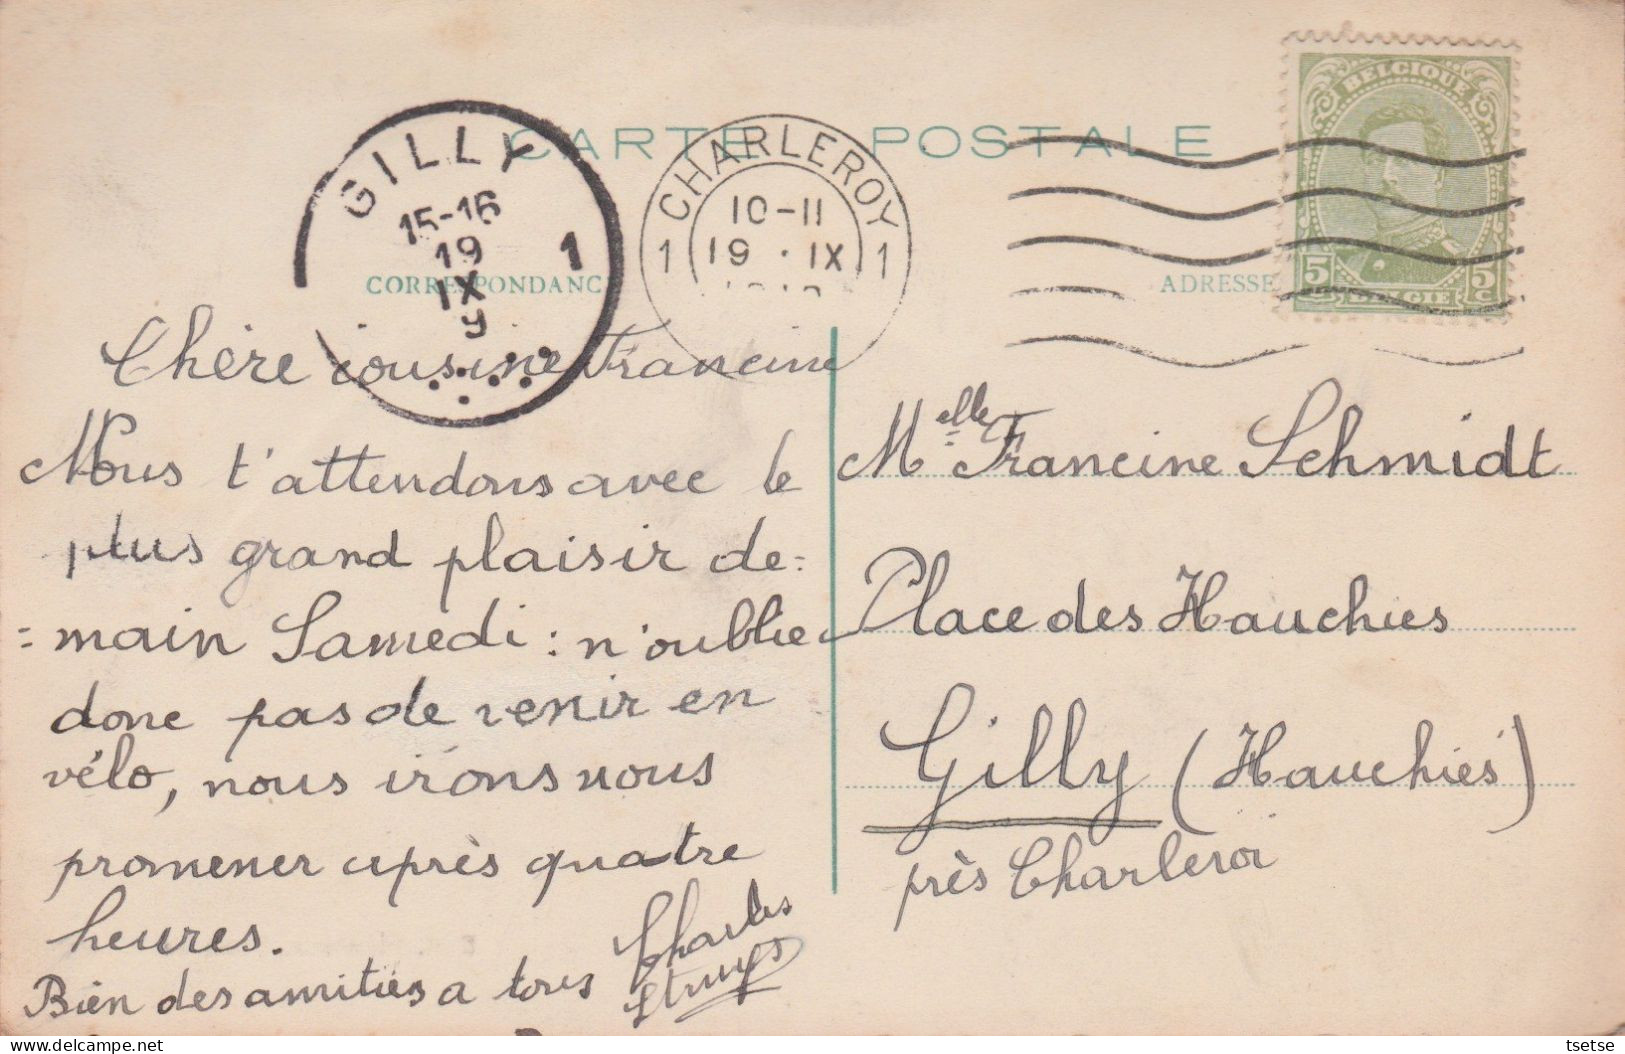 CARTE POSTALE
GILLY
15-16
19
IX
9
1
CHARLEROY
10-11
19 · IX
1 1
BELGIQUE
5c 5c
BELGIE
CORRESPONDANC
ADRESSE
Chère cousine Francine
Nous t'attendons avec le
plus grand plaisir de=
=main Samedi : n'oublie
donc pas de venir en
vélo, nous irons nous
promener après quatre
heures.
Bien des amitiés a tous
Charles
Struys
Melle Francine Schmidt
Place des Hauchies
Gilly (Hauchies)
près Charleroi
delcampe.net
tsetse